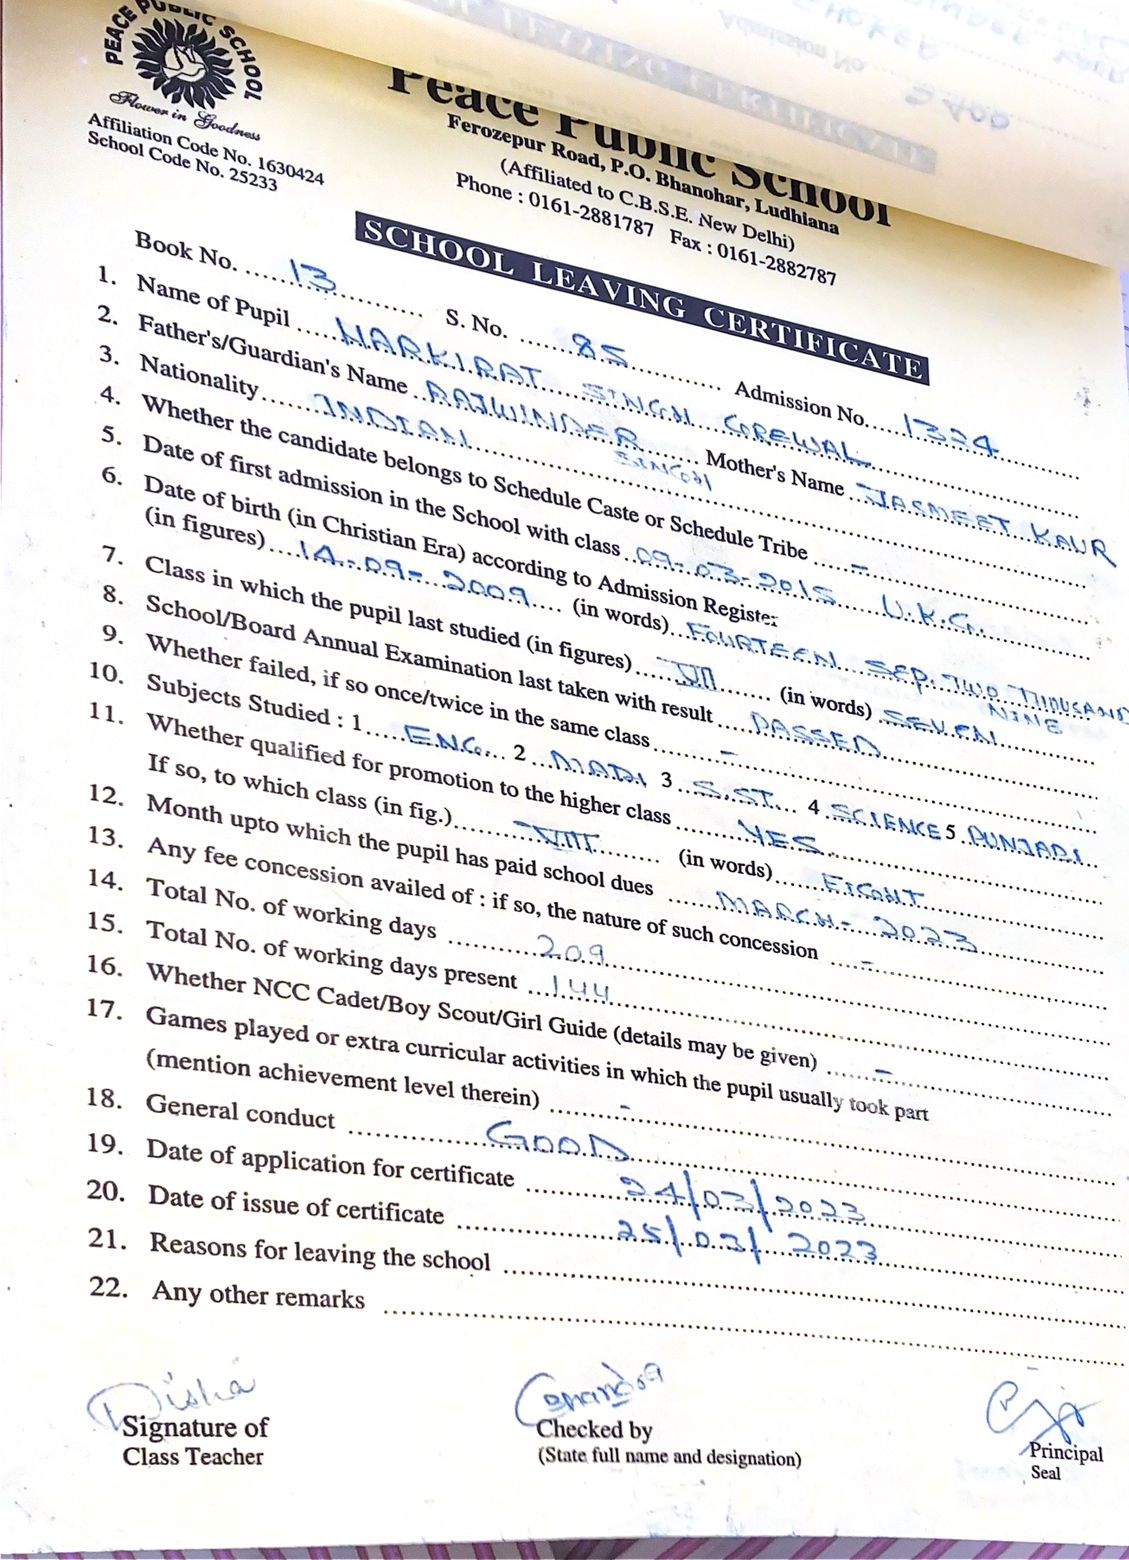 PEACE PUBLIC SCHOOL
Flower in Goodness
Affiliation Code No. 1630424
School Code No. 25233
Peace Public School
Ferozepur Road, P.O. Bhanohar, Ludhiana
(Affiliated to C.B.S.E. New Delhi)
Phone : 0161-2881787 Fax : 0161-2882787
SCHOOL LEAVING CERTIFICATE
Book No. 13 S. No. 85 Admission No. 1324
1. Name of Pupil HARKIRAT SINGH GREWAL
2. Father's/Guardian's Name RAJWINDER SINGH Mother's Name JASMEET KAUR
3. Nationality INDIAN
4. Whether the candidate belongs to Schedule Caste or Schedule Tribe -
5. Date of first admission in the School with class 09-03-2015 U.K.G.
6. Date of birth (in Christian Era) according to Admission Register
(in figures) 14-09-2009 (in words) FOURTEEN SEP. TWO THOUSAND NINE
7. Class in which the pupil last studied (in figures) VII (in words) SEVEN
8. School/Board Annual Examination last taken with result PASSED
9. Whether failed, if so once/twice in the same class -
10. Subjects Studied : 1 ENG. 2 MATH 3 S.ST. 4 SCIENCE 5 PUNJABI
11. Whether qualified for promotion to the higher class YES
If so, to which class (in fig.) VIII (in words) EIGHT
12. Month upto which the pupil has paid school dues MARCH-2023
13. Any fee concession availed of : if so, the nature of such concession -
14. Total No. of working days 209
15. Total No. of working days present 144
16. Whether NCC Cadet/Boy Scout/Girl Guide (details may be given) -
17. Games played or extra curricular activities in which the pupil usually took part
(mention achievement level therein) -
18. General conduct GOOD
19. Date of application for certificate 24/03/2023
20. Date of issue of certificate 25/03/2023
21. Reasons for leaving the school
22. Any other remarks
Disha
Signature of
Class Teacher
Checked by
(State full name and designation)
Principal
Seal